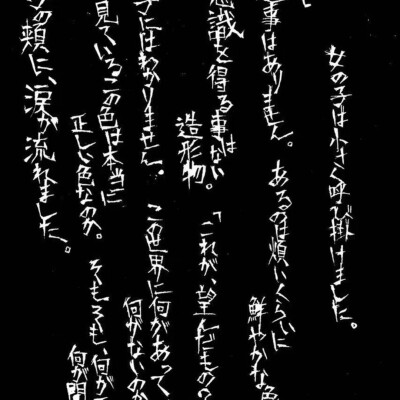 女の子は小さく呼び掛けました。
事はありません。あるのは煩いくらいに
鮮やかな色
意識を得る事はない
造形物。「これが、望んだもの?
子にはわかりません。この世界に何があって
何がないのか
見ている。この色は本当に
正しい色なのか。そもそも、何が
何が間
の頬に、涙が流れました。